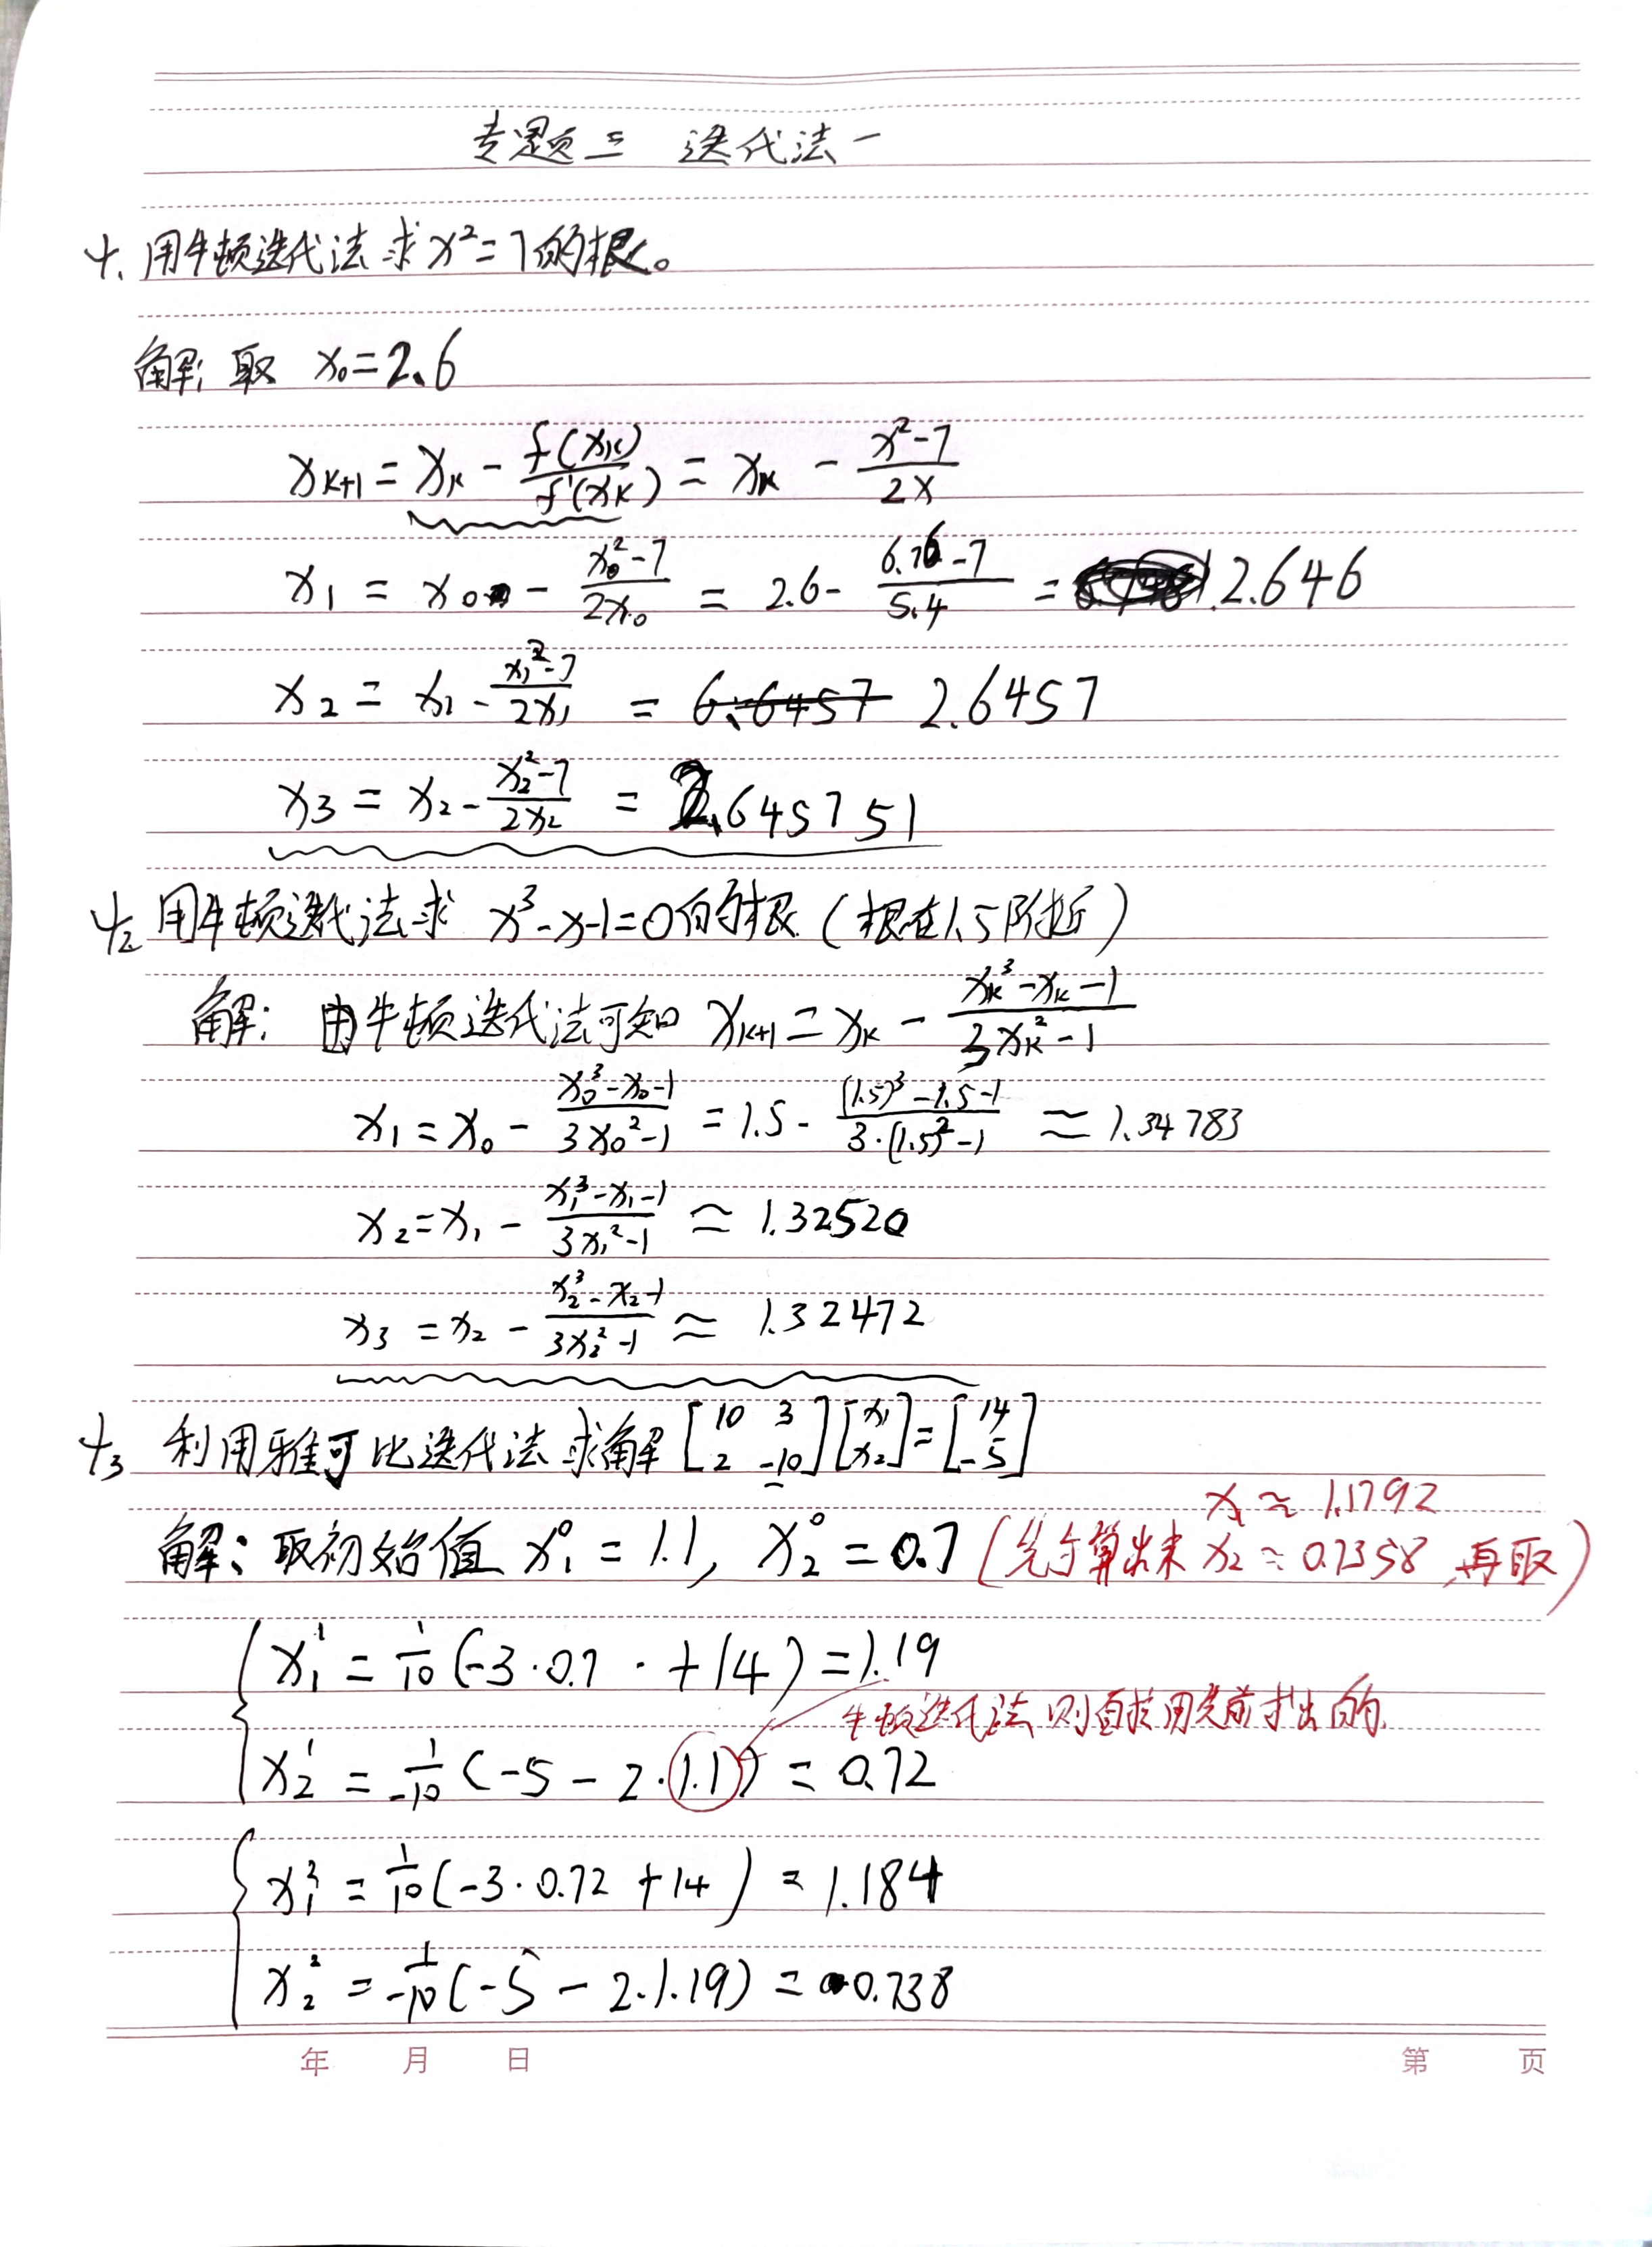 专题三 迭代法一
1. 用牛顿迭代法求 x²=7的根。
解: 取 x₀=2.6
xₖ₊₁ = xₖ - f(xₖ)/f'(xₖ) = xₖ - (x²-7)/(2x)
x₁ = x₀ - (x₀²-7)/(2x₀) = 2.6 - (6.76-7)/5.4 = 2.646
x₂ = x₁ - (x₁²-7)/(2x₁) = 6.6457 2.6457
x₃ = x₂ - (x₂²-7)/(2x₂) = 2.645751
2 用牛顿迭代法求 x³-x-1=0的根 (根在1.5附近)
解: 由牛顿迭代法可知 xₖ₊₁ = xₖ - (xₖ³-xₖ-1)/(3xₖ²-1)
x₁ = x₀ - (x₀³-x₀-1)/(3x₀²-1) = 1.5 - ((1.5)³-1.5-1)/(3·(1.5)²-1) ≈ 1.34783
x₂ = x₁ - (x₁³-x₁-1)/(3x₁²-1) ≈ 1.32520
x₃ = x₂ - (x₂³-x₂-1)/(3x₂²-1) ≈ 1.32472
3 利用雅可比迭代法求解 [10 3; 2 -10][x₁; x₂]=[14; -5]
x₁ ≈ 1.1792
解: 取初始值 x₁⁰ = 1.1, x₂⁰ = 0.7 (先算出来 x₂ ≈ 0.7358 再取)
x₁¹ = 1/10 (-3·0.7 · +14) = 1.19
牛顿迭代法则直接用先前求出的
x₂¹ = 1/-10 (-5 - 2·1.1) = 0.72
x₁² = 1/10 (-3·0.72 +14) = 1.184
x₂² = 1/-10 (-5 - 2·1.19) = 0.738
年 月 日 第 页